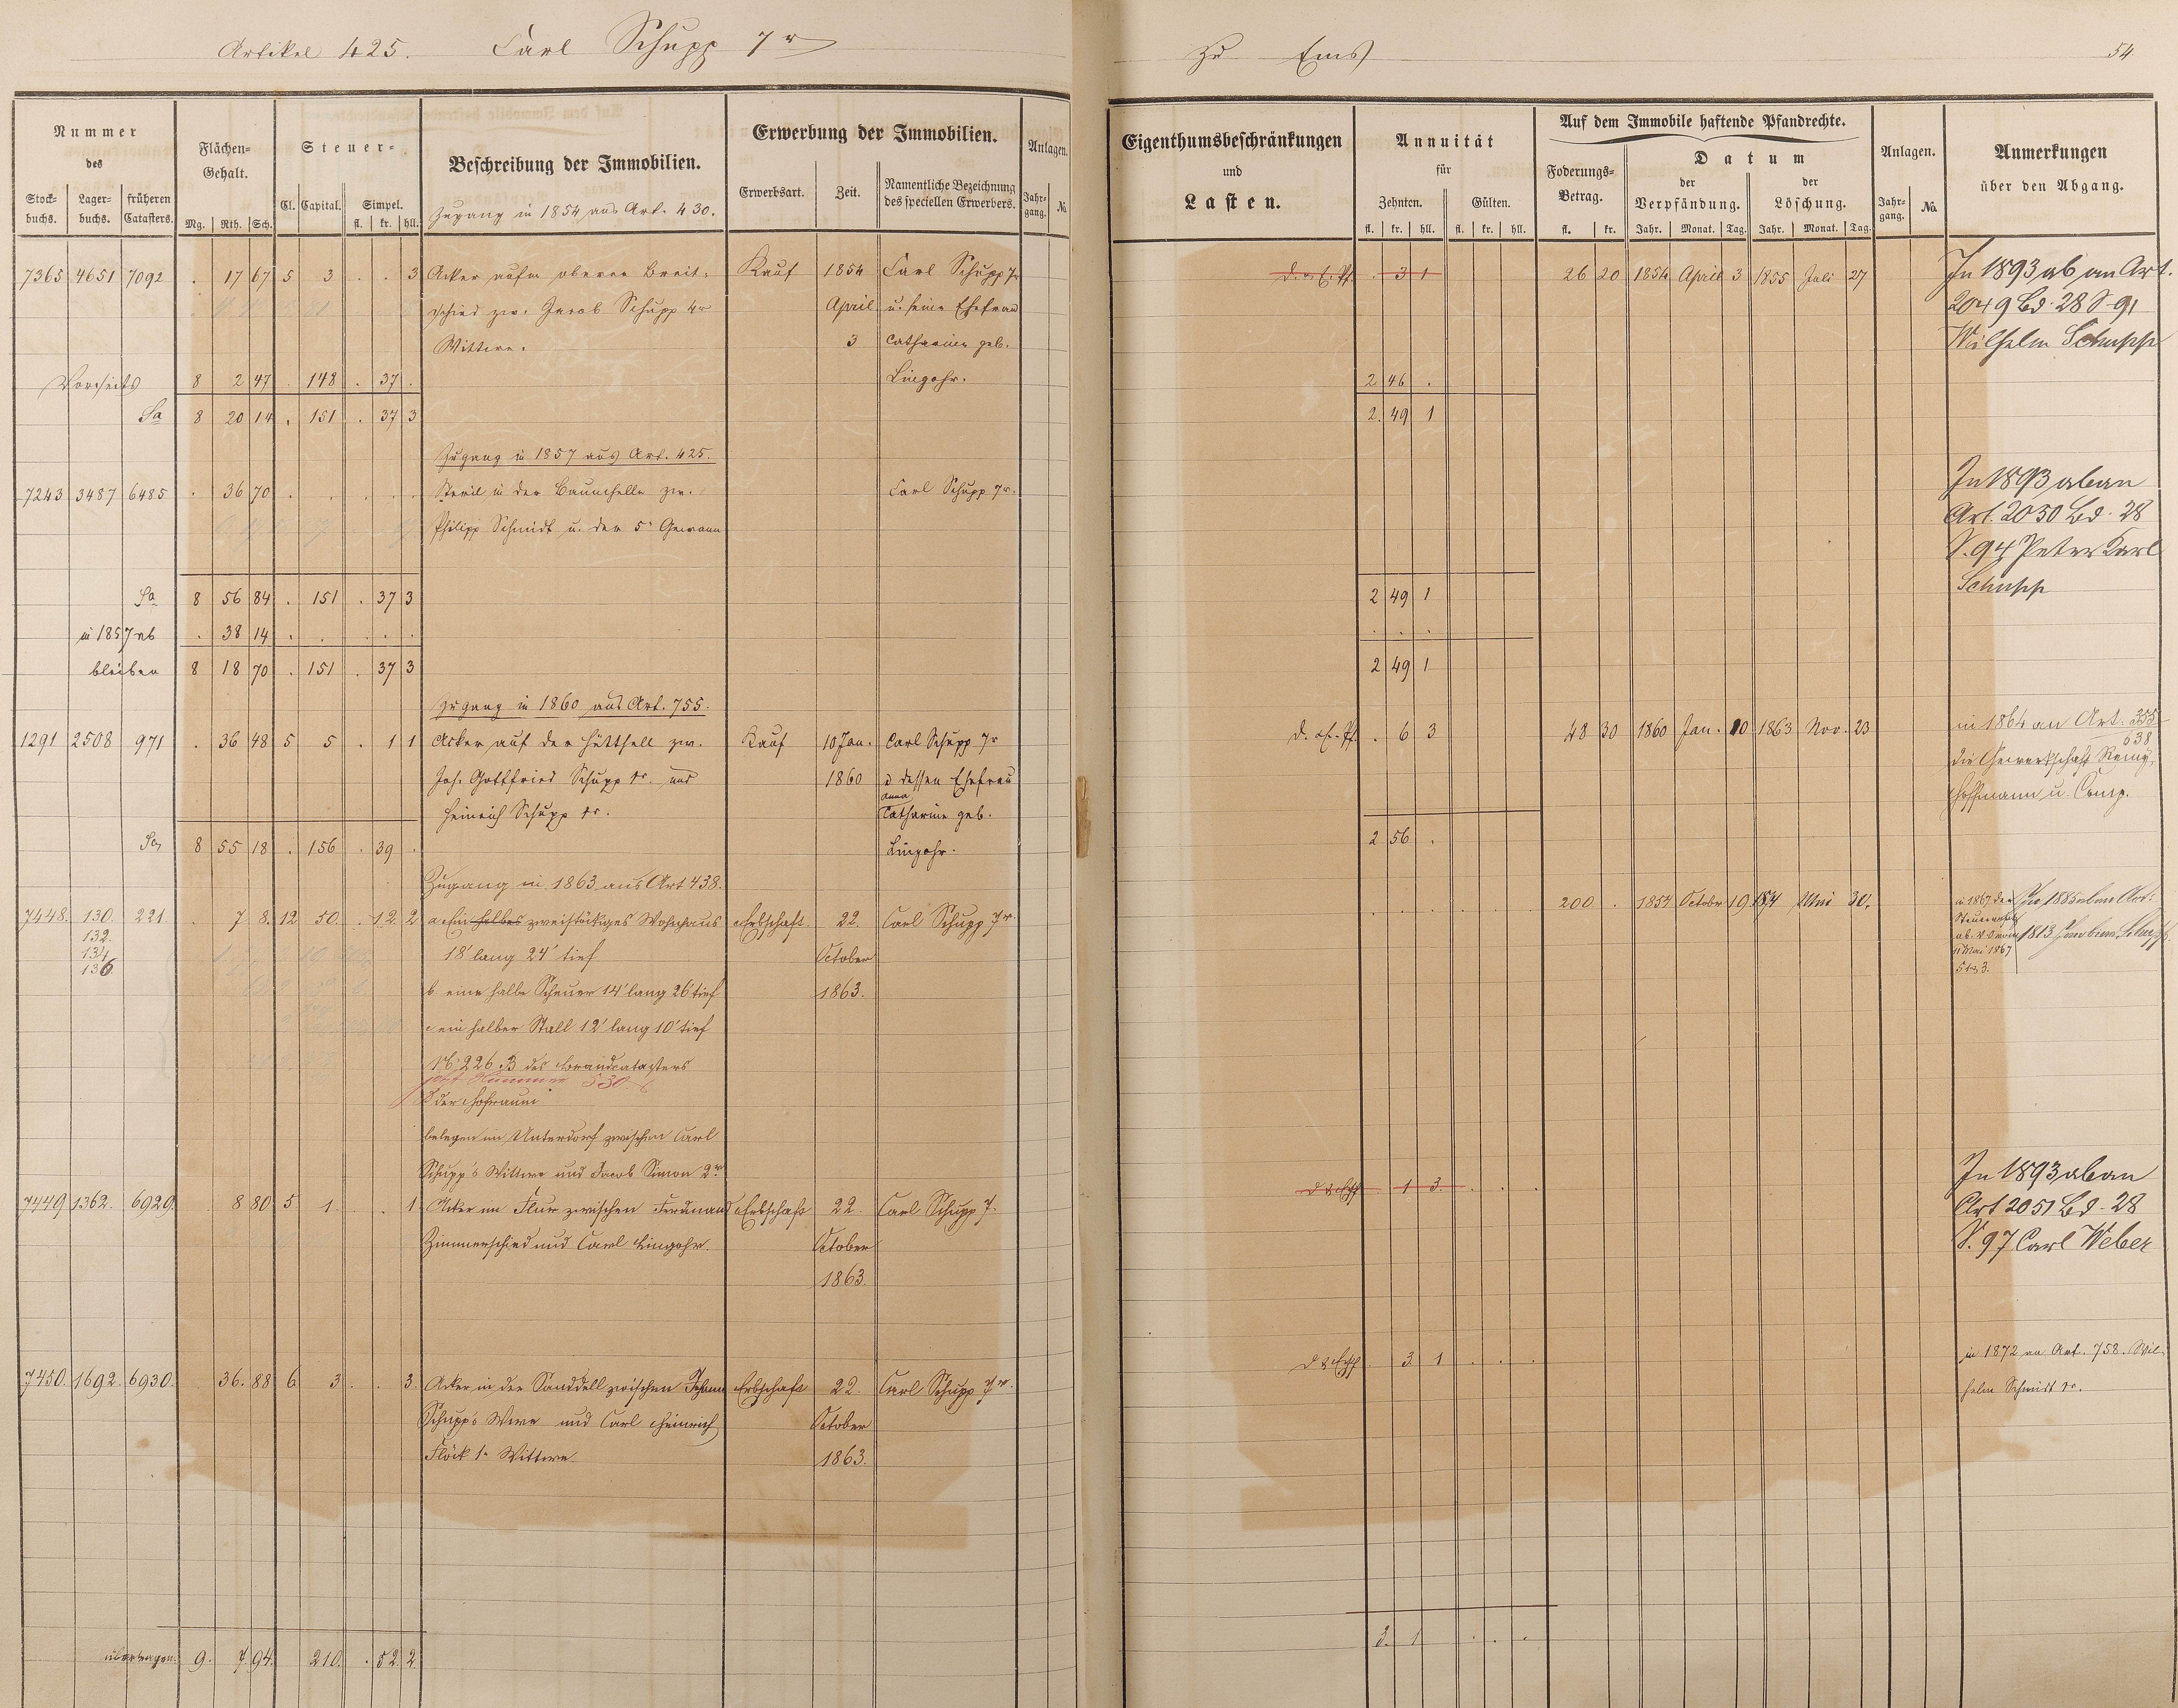 Artikel 425. Carl Schupp 7r
zu Ems
54
Nummer des
Stock-buchs. Lager-buchs. früheren Catasters.
Flächen-Gehalt.
Mg. Rth. Sch.
Steuer-
Cl. Capital. Simpel.
fl. kr. hll.
Beschreibung der Immobilien.
Erwerbung der Immobilien.
Erwerbsart. Zeit. Namentliche Bezeichnung des speciellen Erwerbers.
Anlagen.
Jahr-gang. No.
Eigenthumsbeschränkungen und Lasten.
Annuität für
Zehnten. Gülten.
fl. kr. hll. fl. kr. hll.
Auf dem Immobile haftende Pfandrechte.
Foderungs-Betrag.
fl. kr.
Datum
der Verpfändung. der Löschung.
Jahr. Monat. Tag. Jahr. Monat. Tag.
Anlagen.
Jahr-gang. No.
Anmerkungen über den Abgang.
Zugang in 1854 aus Art. 430.
7365 4651 7092 . 17 67 5 3 . . 3 Acker aufm oberen Breit- Kauf 1854 Carl Schupp 7r . 3 1 26 20 1854 April 3 1855 Juli 27 In 1893 ab an Art.
schied zw. Jacob Schupp 4r April u. seine Ehefrau 2049 Bd. 28 S. 91
Wittwe. 3 Catharine geb. Wilhelm Schupp
Vorseits 8 2 47 . 148 . 37 . Lingohr. 2 46 .
Sa 8 20 14 . 151 . 37 3 2. 49 1
Zugang in 1857 aus Art. 425.
7243 3487 6485 . 36 70 . . . . . in der Baumhelle zw. Carl Schupp 7r. In 1893 ab an
Philipp Schmidt u. der 5n Gewann Art. 2050 Bd. 28
S. 94 Peter Karl
Schupp
Sa 8 56 84 . 151 . 37 3 2 49 1
in 1857 ab . 38 14 . . . . . . . .
bleiben 8 18 70 . 151 . 37 3 2 49 1
Zugang in 1860 aus Art. 755.
1291 2508 971 . 36 48 5 5 . 1 1 Acker auf der Hütthell zw. Kauf 10 Jan. Carl Schupp 7r . 6 3 48 30 1860 Jan. 10 1863 Nov. 23 in 1864 an Art. 355
638
Joh. Gottfried Schupp 1r. und 1860 u dessen Ehefrau die Gewerkschaft Remy,
Heinrich Schupp 1r. Anna Catharine geb. Hoffmann u. Comp.
Sa 8 55 18 . 156 . 39 . Lingohr. 2 56 .
Zugang in 1863 aus Art 438.
7448. 130. 221. . 7 8. 12. 50. . 12. 2 a. Ein halbes zweistöckiges Wohnhaus Erbschaft 22. Carl Schupp 7r. 200 . 1854 October 19 1874 Mai 30. in 1867 der In 1885 ab an Art.
132.
134
136
18' lang 24' tief October 1813
11 Mai 1867
b. eine halbe Scheuer 14' lang 26' tief 1863.
c ein halber Stall 12' lang 10' tief
No 226 B des Brandcatasters
jetzt Nummer 330.
d der Hofraum
belegen im Unterdorf zwischen Carl
Schupp's Wittwe und Jacob Simon 2r.
7449 1362. 6929. . 8 80 5 1. . . 1 Acker im Flur zwischen Ferdinand Erbschaft 22. Carl Schupp 7. . 1 3. . . . In 1893 ab an
Zimmerschied und Carl Lingohr. October Art 2051 Bd. 28
1863. S. 97 Carl Weber
7450. 1692. 6930. 36. 88 6 3 . . 3. Acker in der Sanddell zwischen Johann Erbschaft 22. Carl Schupp 7r. . 3. 1 . . . in 1872 an Art. 758. Wil-
Schupp's Wwe und Carl Heinrich October helm Schmidt 1r.
Flöck 1r Wittwe. 1863.
übertragen. 9. 7. 94. 210. . 52. 2. 3. 1 . . .